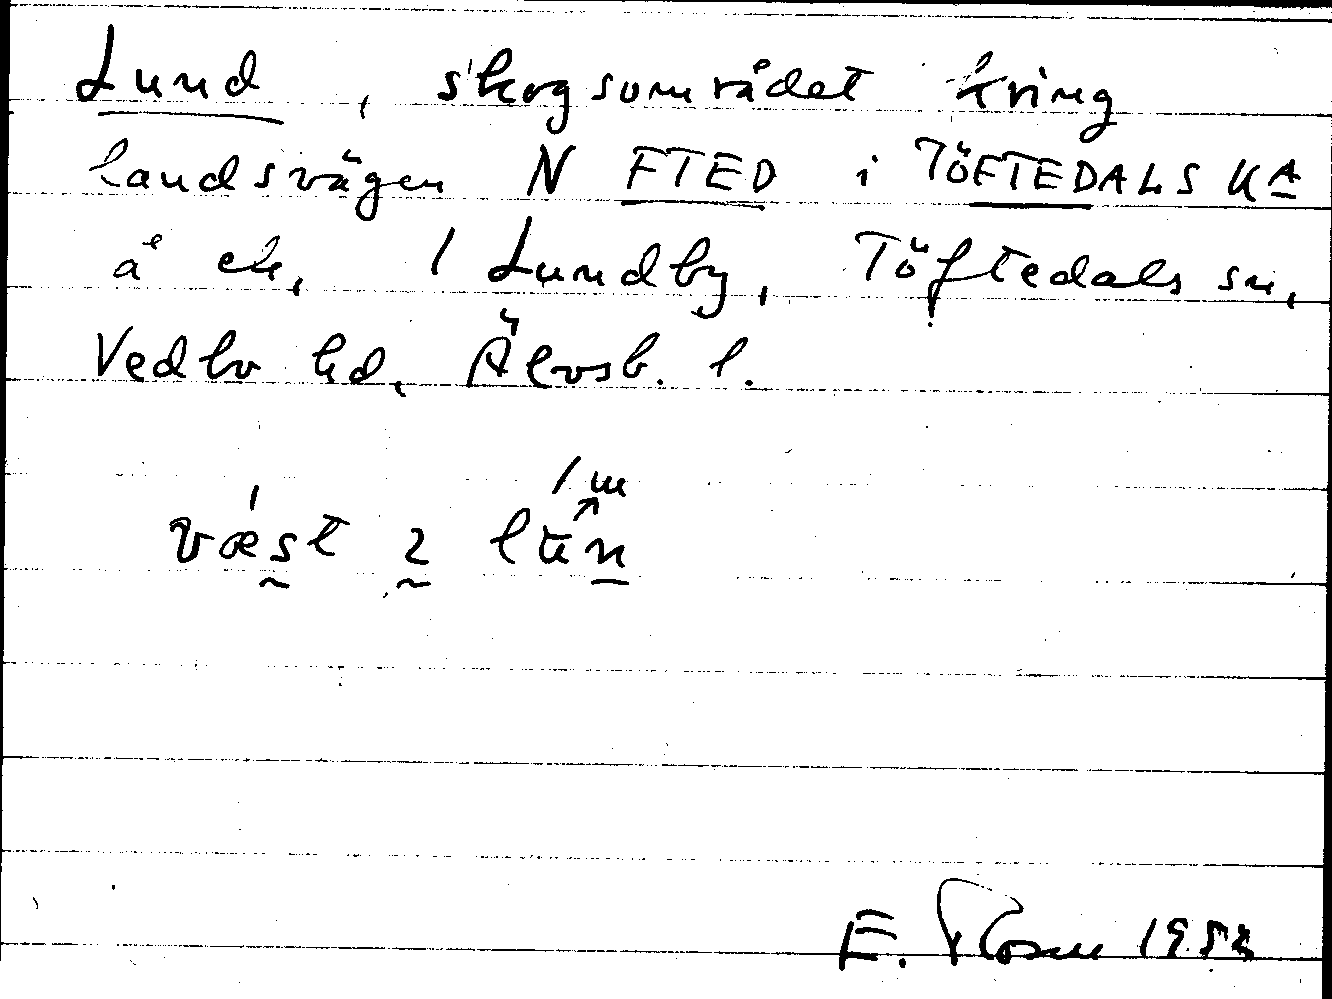 Lund, skogsområdet kring
landsvägen N FTED i TÖFTEDALS KA
å ek, 1 Lundby, Töftedals sn,
Vedbo hd, Älvsb. l.
1 m
væst 2 lun
E. 1952